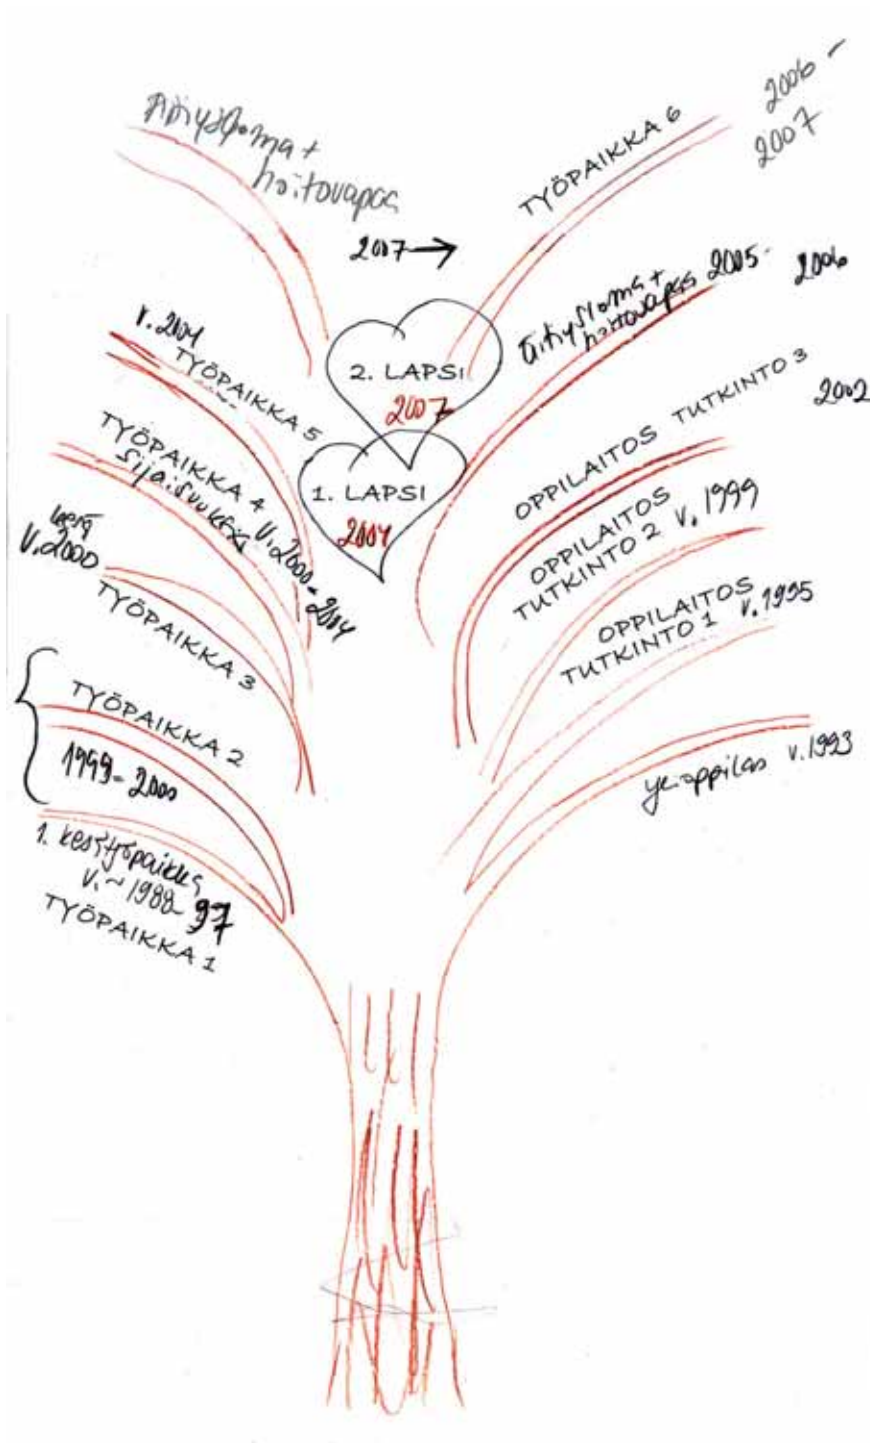 Äitiysloma +
hoitovapaa
2007 →
TYÖPAIKKA 6
2006 –
2007
2. LAPSI
2007
1. LAPSI
2004
äitiysloma +
hoitovapaa 2005-
2006
v. 2004
TYÖPAIKKA 5
TYÖPAIKKA 4
Sijaisuuksia v. 2000-2004
kesä
v. 2000
TYÖPAIKKA 3
TYÖPAIKKA 2
1999- 2000
1. kesätyöpaikka
v. ~ 1988- 97
TYÖPAIKKA 1
OPPILAITOS TUTKINTO 3
2002
OPPILAITOS
TUTKINTO 2 v. 1999
OPPILAITOS
TUTKINTO 1 v. 1995
ylioppilas v. 1993